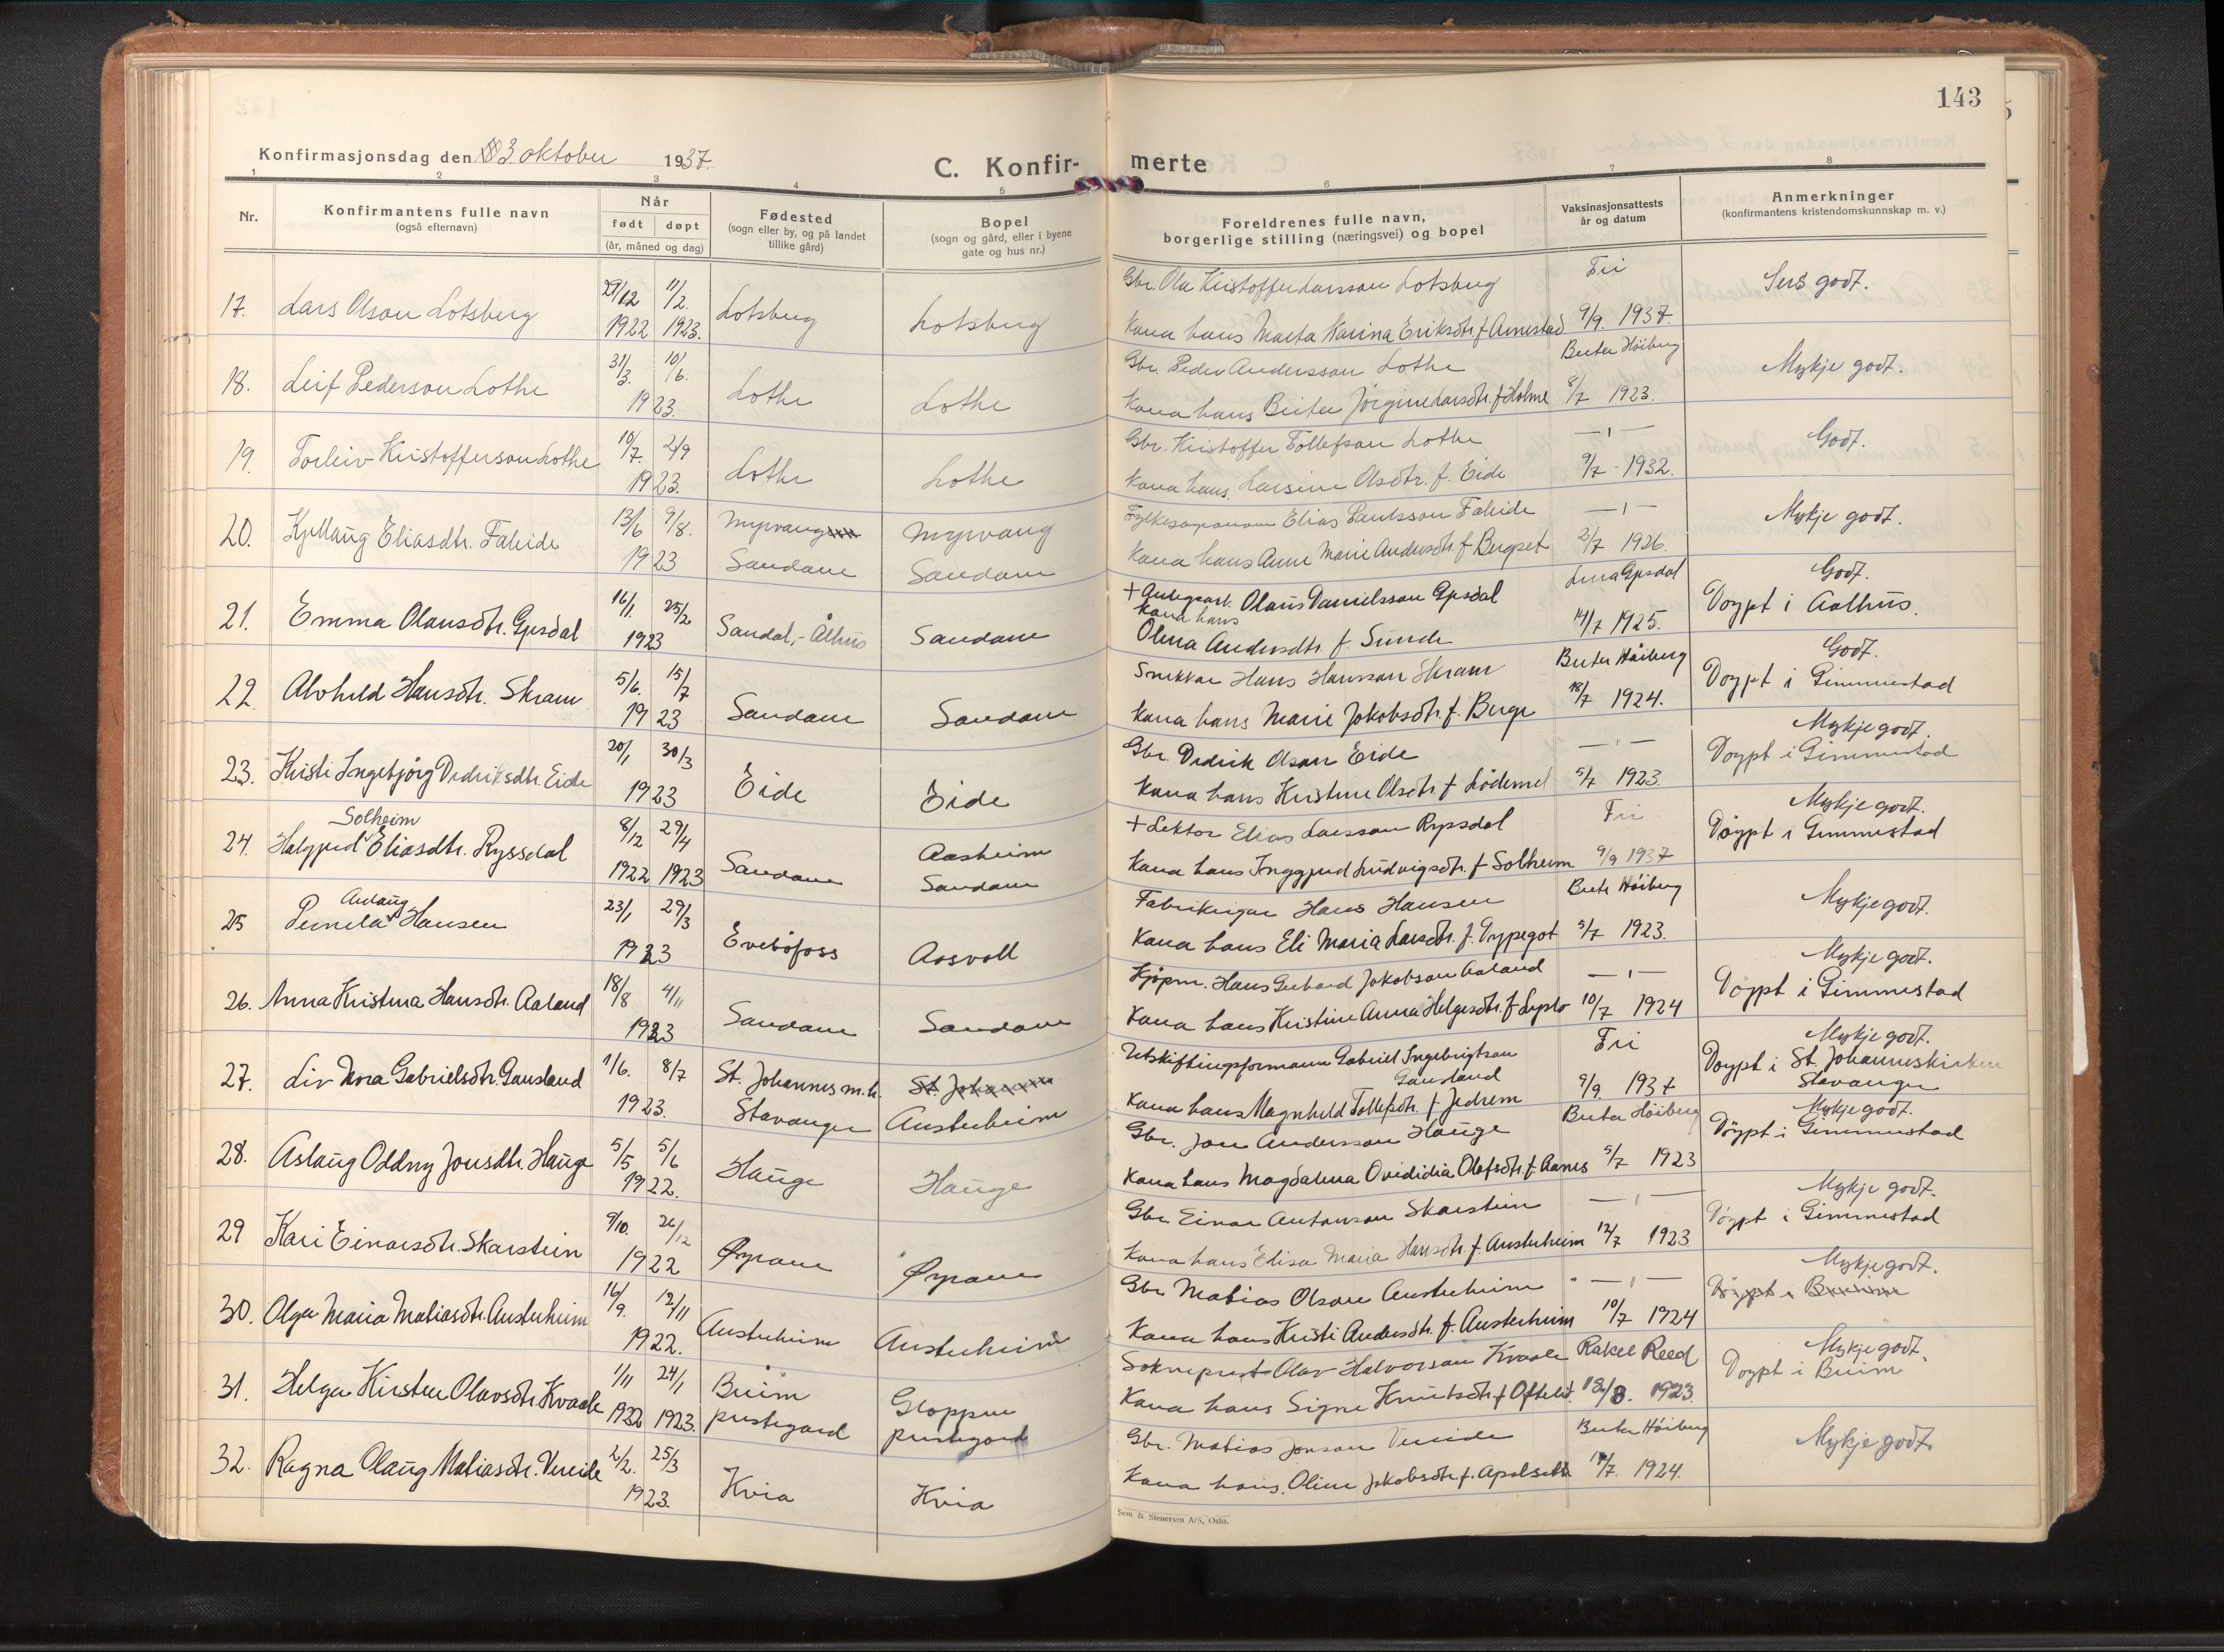 143
Konfirmasjonsdag den 3. oktober 1937.
C. Konfir- merte
1 2 3 4 5 6 7 8
Nr.
Konfirmantens fulle navn
(også efternavn)
Når
født døpt
(år, måned og dag)
Fødested
(sogn eller by, og på landet
tillike gård)
Bopel
(sogn og gård, eller i byene
gate og hus nr.)
Foreldrenes fulle navn,
borgerlige stilling (næringsvei) og bopel
Vaksinasjonsattests
år og datum
Anmerkninger
(konfirmantens kristendomskunnskap m. v.)
17. Lars Olson Lotsberg 29/12 1922 11/2. 1923. Lotsberg Lotsberg
Gbr. Ola Kristoffer Larsson Lotsberg Fri Sers godt.
Kona hans Marta Karina Eriksdtr. f Arnestad 9/9. 1937.
18. Leif Pederson Lothe 31/3. 10/6. 1923. Lothe Lothe
Gbr. Peder Andersson Lothe Berter Höiberg Mykje godt.
Kona hans Birter Jörgine Larsdtr. f Holme 8/7 1923.
19. Torleiv Kristofferson Lothe 10/7. 2/9 1923. Lothe Lothe
Gbr. Kristoffer Tollefson Lothe — ı — Godt.
Kona hans Larsine Olsdtr. f. Eide 9/7 - 1932.
20. Kjellaug Eliasdtr. Faleide 13/6 9/8. 1923 Myrvang Sandane Myrvang Sandane
Elias Paulsson Faleide — ı — Mykje godt.
Kona hans Anne Marie Andersdtr. f Bergset 2/7 1926.
21. Emma Olausdtr. Gjesdal 16/1 25/2 1923 Sandal, - Ålhus Sandane
+ Olaus Danielsson Gjesdal Lina Gjesdal Godt.
Kona hans
Olina Andersdtr. f. Sunde 14/7 1925. Döypt i Aalhus.
22. Alvhild Hansdtr. Skram 5/6. 15/7 1923 Sandane Sandane
Snekkar Hans Hansson Skram Berter Höiberg Godt.
Kona hans Marie Jakobsdtr. f. Berge 18/7 1924. Döypt i Gimmestad
23. Kristi Ingebjörg Dedriksdtr. Eide 20/1 30/3 1923 Eide Eide
Gbr. Dedrik Olson Eide — ı — Mykje godt.
Kona hans Kristine Olsdtr f Lödemel 5/7 1923. Döypt i Gimmestad
24. Halgjerd Solheim Eliasdtr. Ryssdal 8/12 1922 29/4 1923 Sandane Aasheim Sandane
+ Lektor Elias Larsson Ryssdal Fri Mykje godt.
Kona hans Inggjerd Ludvigsdtr. f Solheim 9/9 1937 Döypt i Gimmestad
25 Pernela Aslaug Hansen 23/1 29/3 1923 Eveböfoss Aasvoll
Fabrikeigar Hans Hansen Berte Höiberg Mykje godt.
Kona hans Eli Maria Larsdtr. f. Mypegot 5/7 1923.
26. Anna Kristina Hansdtr. Aaland 18/8 4/11 1923 Sandane Sandane
Kjöpm. Hans Gerhard Jakobson Aaland — ı — Mykje godt.
Kona hans Kristine Anna Helgesdtr. f Lyslo 10/7 1924 Döypt i Gimmestad
27. Liv Nora Gabrielsdtr. Gausland 1/6. 8/7 1923. St. Johannes m.h. Stavanger Austerheim
Utskiftingsformann Gabriel Ingebrigtson Gausland Fri Mykje godt.
Kona hans Magnhild Tollefsdtr. f Jedrem 9/9. 1937 Döypt i St. Johanneskirken Stavanger
28. Aslaug Oddny Jonsdtr. Hauge 5/5 5/6 1922. Hauge Hauge
Gbr. Jon Andersson Hauge Berter Höiberg Mykje godt.
Kona hans Magdalena Ovididia Olafsdtr. f. Aanes 5/7 1923 Döypt i Gimmestad
29 Kari Einarsdtr. Skarstein 9/10. 26/12 1922 Øyrane Øyrane
Gbr. Einar Antonson Skarstein — ı — Mykje godt.
Kona hans Elisa Maria Hansdtr. f. Austerheim 12/7 1923 Döypt i Gimmestad
30. Olga Maria Matiasdtr. Austerheim 16/9. 12/11 1922. Austerheim Austerheim
Gbr Matias Olson Austerheim — ı — Mykje godt.
Kona hans Kristi Andersdtr. f. Austerheim 10/7 1924 Döypt i Breim
31. Helga Kirsten Olavsdtr. Kvaale 1/11 1922 24/1 1923. Breim prestegard Gloppen prestegard
Sokneprest Olav Halvorson Kvaale Rakel Reed Mykje godt.
Kona hans Signe Knutsdtr. f Oftelid. 18/8. 1923. Döypt i Breim
32. Ragna Olaug Matiasdtr. Vereide 2/2. 25/3 1923. Kvia Kvia
Gbr. Matias Jonson Vereide Berter Höiberg Mykje godt.
Kona hans Oline Jakobsdtr f. Apalset 17/7. 1924.
Sem & Stenersen A/S, Oslo.